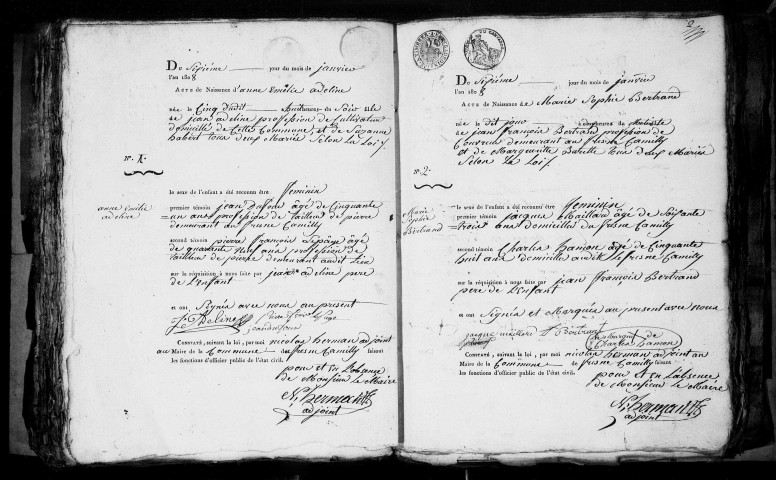 Du Sixiéme jour du mois de janvier
l'an 1808
Acte de Naissance d'anne Emélie adeline
née le Cinq dudit du Soir fille
de jean adeline profession de Cultivateur
domicilié de Cette Commune, et de Suzanne
habert tous deux Mariés Selon La Loix
No. 1.
anne Emilie
adeline
le sexe de l'enfant a été reconnu être féminin
premier témoin jean Dufour âgé de Cinquante
un ans profession de tailleur de pierre
demeurant au fresne Camilly
second témoin pierre françois Lepage âgé
de quarante huit ans profession de
tailleur de pierre demeurant audit lieu
sur la réquisition à nous faite par jean adeline pere
de L'enfant
et ont Signés avec nous au present
J. Adeline
Pierre françois le Page
jean dufour
Constaté, suivant la loi, par moi nicolas herman adjoint
au Maire de la Commune du fresne Camilly faisant
les fonctions d'officier public de l'état civil.
pour et en L'absence
de Monsieur Le Maire
N. herman
adjoint
2
Du Sixiéme jour du mois de janvier
l'an 1808
Acte de Naissance de Marie Sophie Bertrand
née le dit jour
de jean françois Bertrand profession de
Couvreur demeurant au fresne Camilly
et de Marguerite Tous deux Mariés
Selon La Loix
No. 2.
Marie
Sophie
Bertrand
le sexe de l'enfant a été reconnu être féminin
premier témoin jacques Maillard âgé de Soixante
trois ans domicilié du fresne Camilly
second témoin Charles hamon âge de Cinquante
huit ans domicilié audit Le fresne Camilly
sur la réquisition à nous faite par jean françois Bertrand
pere de L'enfant
et ont Signés et Marqués au present avec nous
jacque maillard
Bertrand
de
Charles hamon
Constaté, suivant la loi, par moi nicolas herman adjoint au
Maire de la Commune de fresne Camilly faisant
les fonctions d'officier public de l'état civil.
pour et en L'absence
de Monsieur Le Maire
N. herman
adjoint